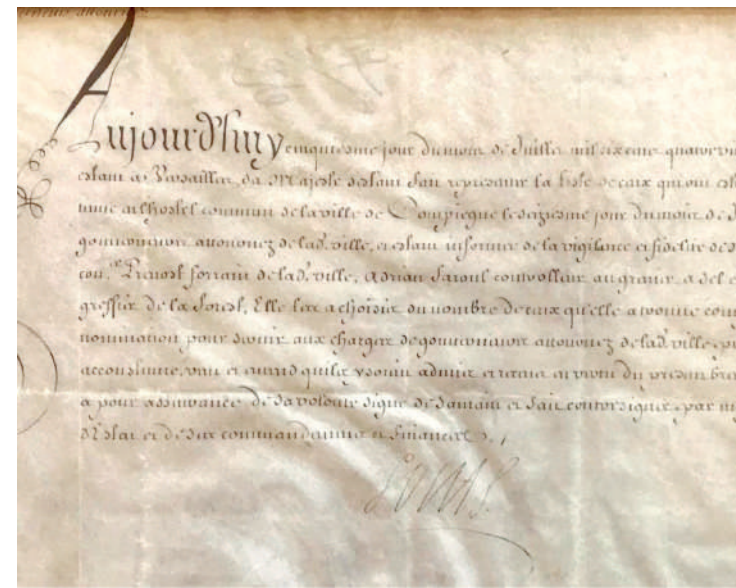 Aujourd'huy cinquiesme jour du mois de Juillet mil six cens quatre vin
estant a Versailles, sa Majesté s'estant fait representer la liste de ceux qui ont est
tenue a l'hostel commun de la ville de Compiegne le seiziesme jour du mois de J
gouverneurs attournez de lad. ville, et estant informée de la vigilance et fidelité des s
con.er Prevost forrain de lad. ville, Adrian controlleur au grenier a sel e
greffier de la forest, Elle les a choisis du nombre de ceux qu'elle a trouvé com
nomination pour servir aux charges de gouverneurs attournez de lad. ville, po
accoustumé, veut et entend qu'ilz y soient admis et receus en vertu du present bre
a pour assurance de sa volonté signé de sa main et fait contresigner par m
d'Estat et de ses commandemens et finances
Louis